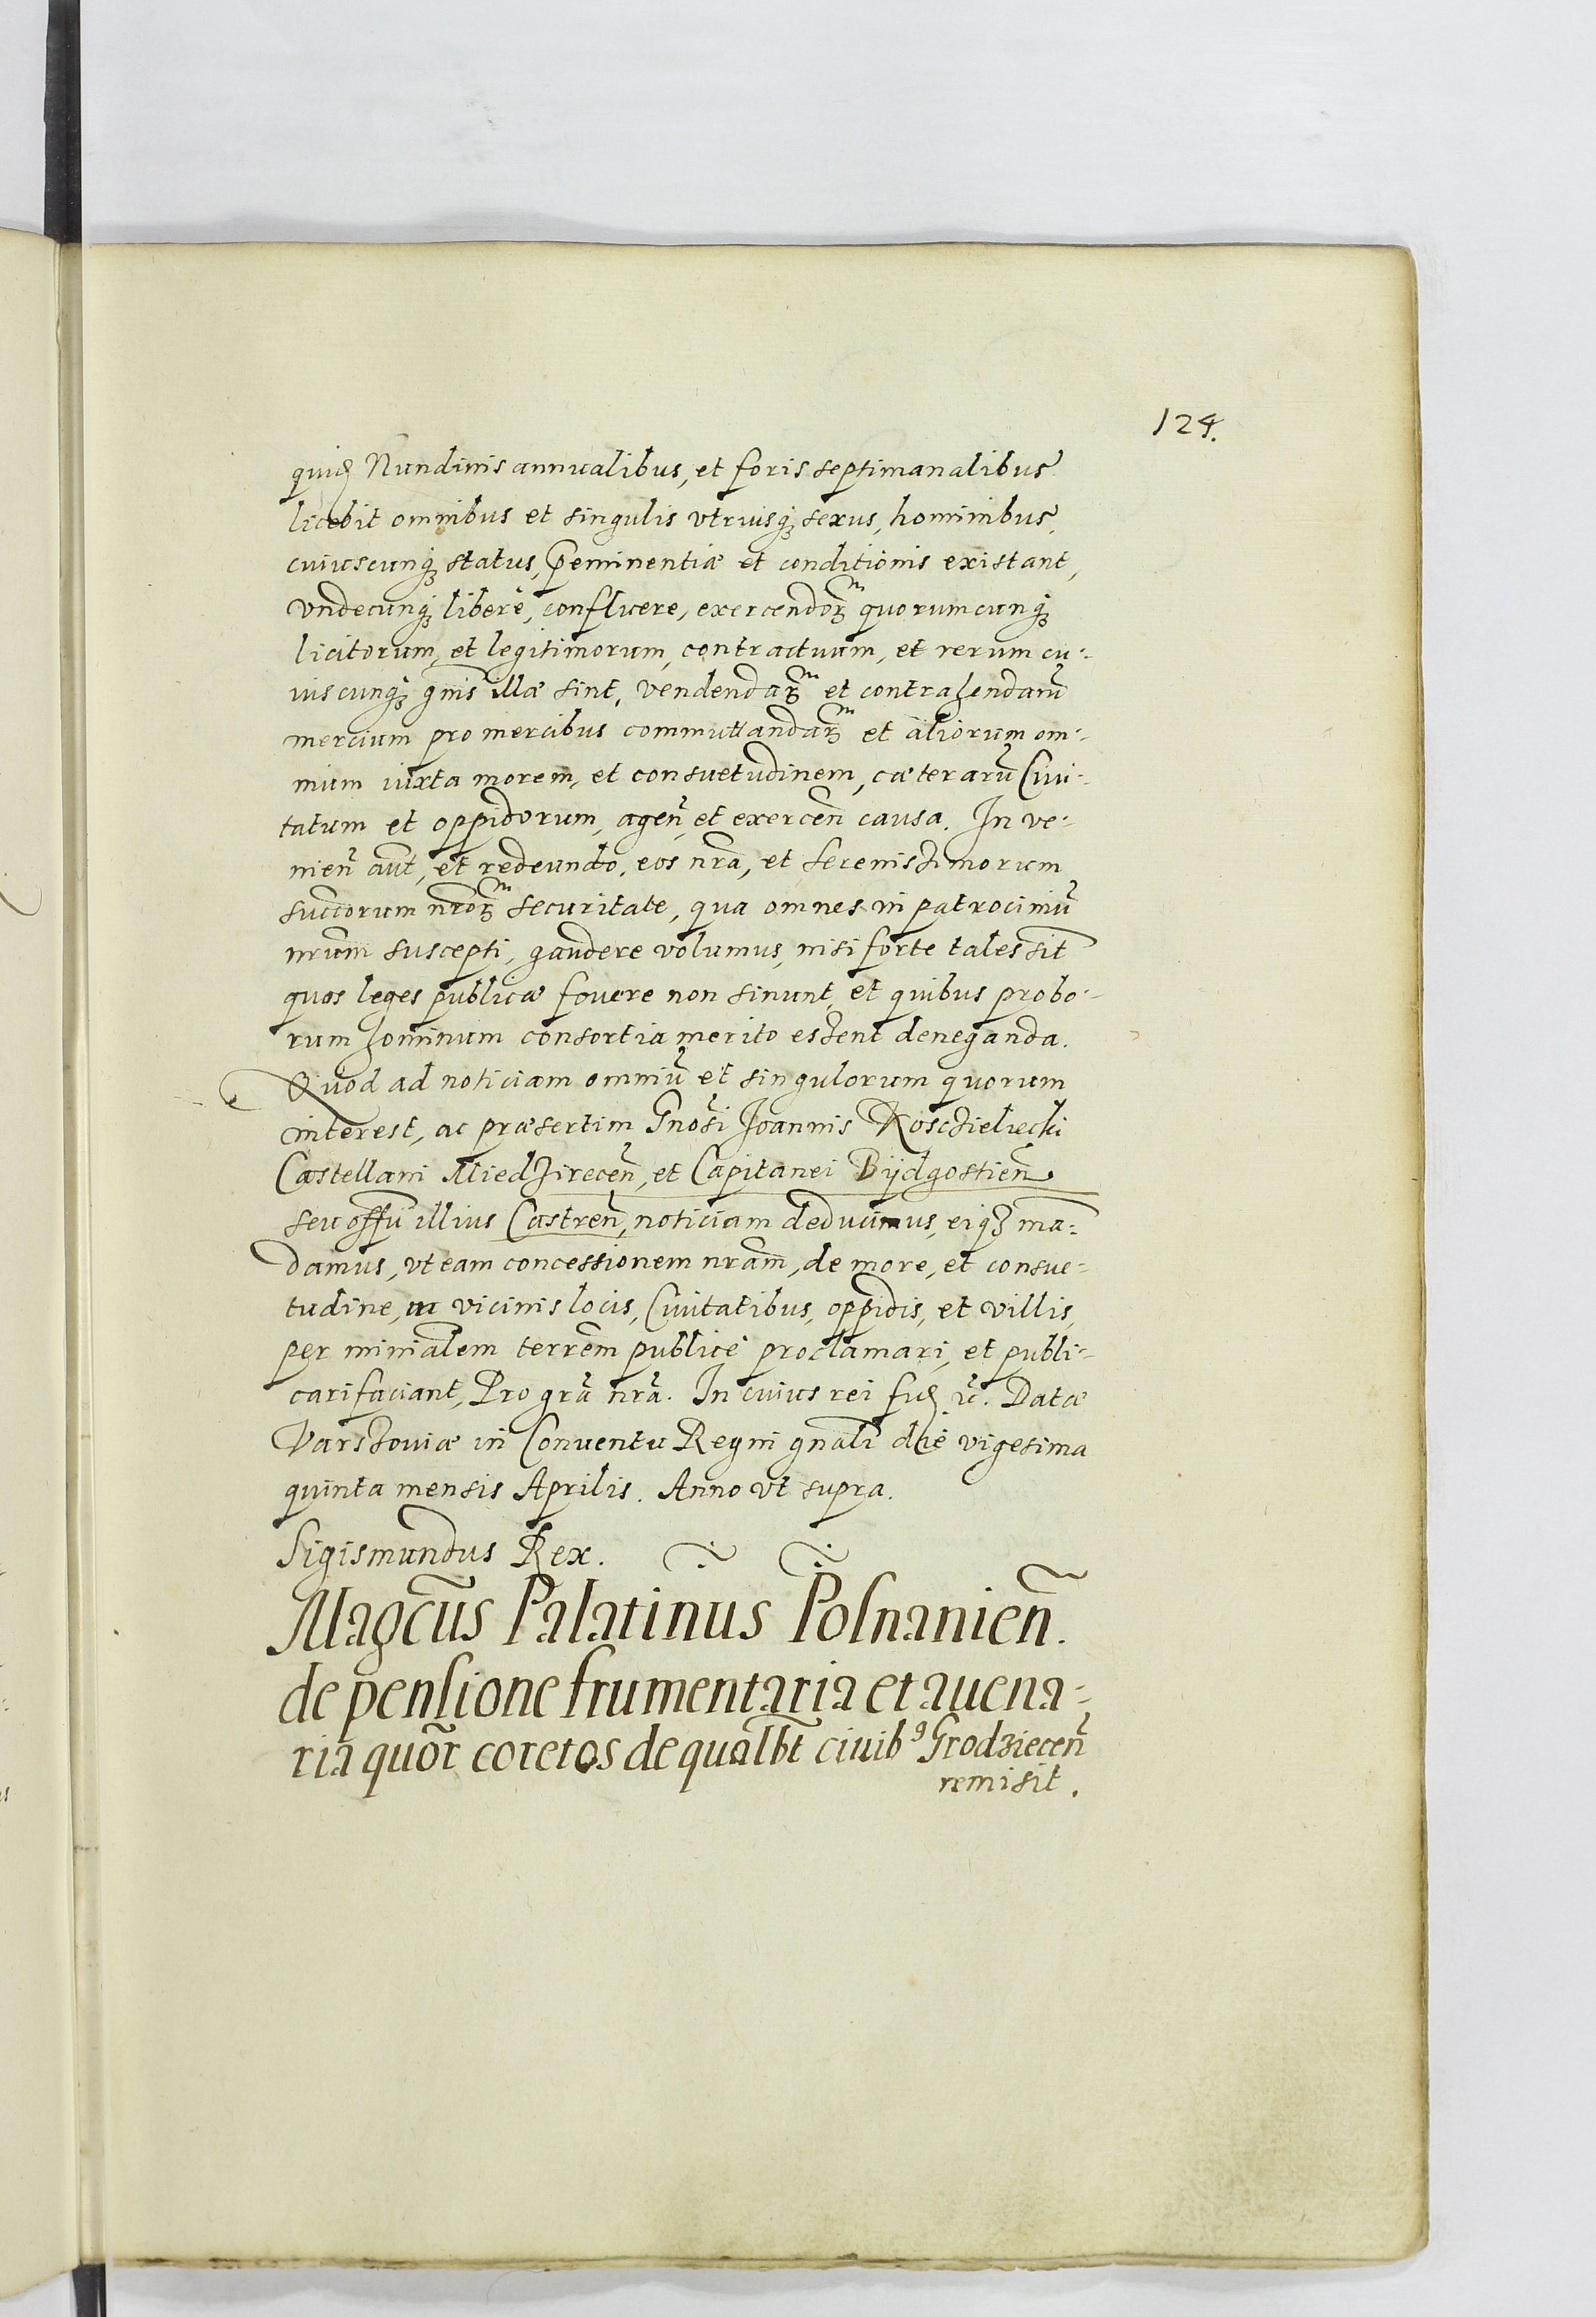 124.
quiꝰ Nundinis annualibus, et foris septimanalibus
licebit omnibus et singulis vtriusq̷ sexus, hominibus,
cuiuscunq̷ status, p̄eminentiæ et conditionis existant,
vndecunq̷ liberè, confluere, exercendoꝝ quorumcunq̷
licitorum, et legitimorum, contractuum, et rerum cu-
iuscunq̷ gñis illæ sint, vendendaꝝ et contrahendarũ
mercium pro mercibus commuttandaꝝ et aliorum om-
nium iuxta morem, et consuetudinem, cæterarũ Ciui-
tatum et oppidorum, ageñ et exerceñ causa. In ve-
nieñ aũt, et redeundo, eos nr̃a, et Serenissimorum
succorum nr̃oꝝ securitate, qua omnes in patrociniũ
nr̃um suscepti, gaudere volumus, nisi forte tales sĩt
quos leges publicæ fouere non sinunt, et quibus probo-
rum hominum consortia merito essent deneganda.
Quod ad noticiam omniũ et singulorum quorum
interest, ac præsertim Gnõsi Joannis Kosczieliecki
Castellani Miedzireceñ, et Capitanei Bÿdgostieñ
seu offĩi illius Castreñ, noticiam deducimus, eiqꝫ mã-
damus, vt eam concessionem nr̃am, de more, et consue-
tudine, in vicinis locis, Ciuitatibus, oppidis, et villis,
per minĩalem terrẽm publicè proclamari, et publi-
cari faciant, Pro gr̃a nr̃a. In cuius rei fidꝭ ec̃. Datæ
Varszouiæ in Conuentu Regni gñali die vigesima
quinta mensis Aprilis. Anno vt supra.
Sigismundus Rex.
Magc̃us Palatinus Posnanieñ.
de pensione frumentaria et auena-
ria quõr coretos de qual̃bt ciuibꝰ Grodzieceñ
remisit.